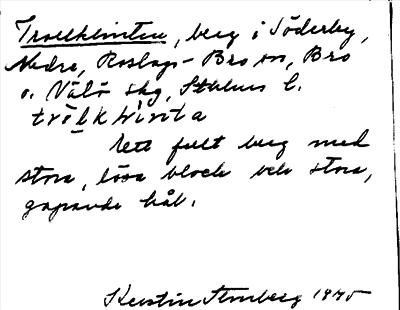 Trollklinten, berg i Söderby,
Nedre, Roslags-Bro sn, Bro
o. Vätö skg, Sthlms l.
trölklinta
Ett fult berg med
stora, lösa block och stora,
gapande hål.
Kerstin Strnberg